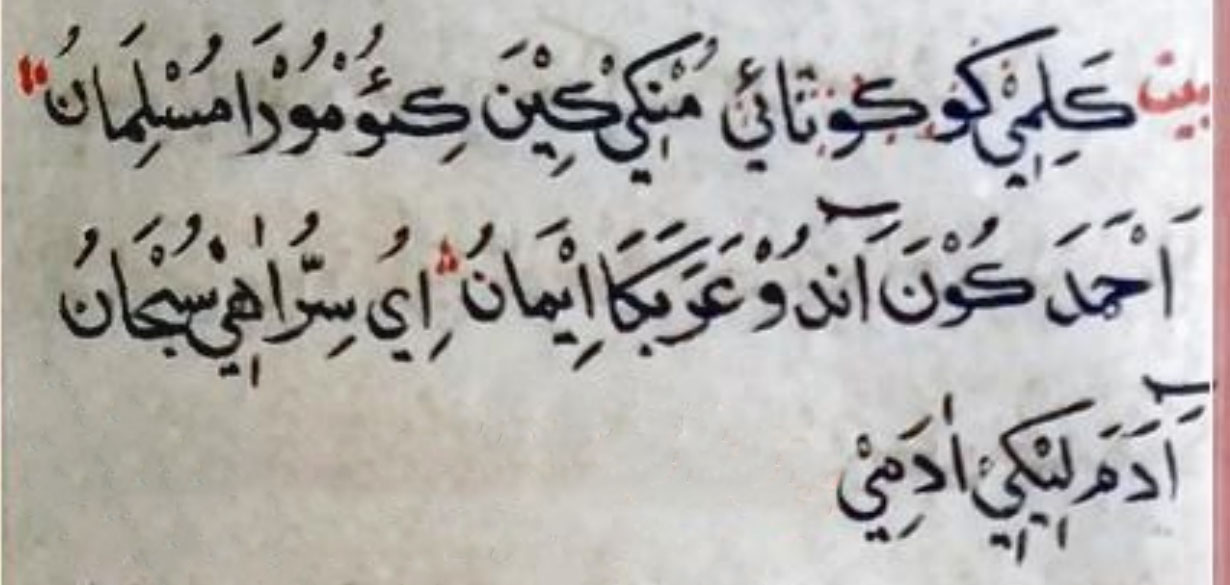 بيت كَلِمٖيْ كُو كُوتَائِيْ مُنْكِيْ كِيْنَ كِئَوُ مُوْرَا مُسْلِمَانُ
اَحْمَدَ كُوْنَ آندُوْ عَرَبَكَا اِيْمَانُ اِيُ سِرُّ اٰهٖيْ سُبْحَانُ
آدَمَ لِيْكِيْ اٰدَمِيْ